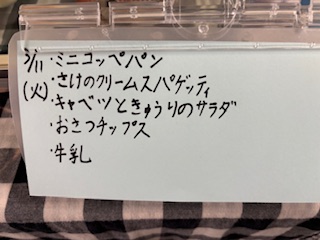 3/11・ミニコッペパン
(火)・さけのクリームスパゲッティ
・キャベツときゅうりのサラダ
・おさつチップス
・牛乳